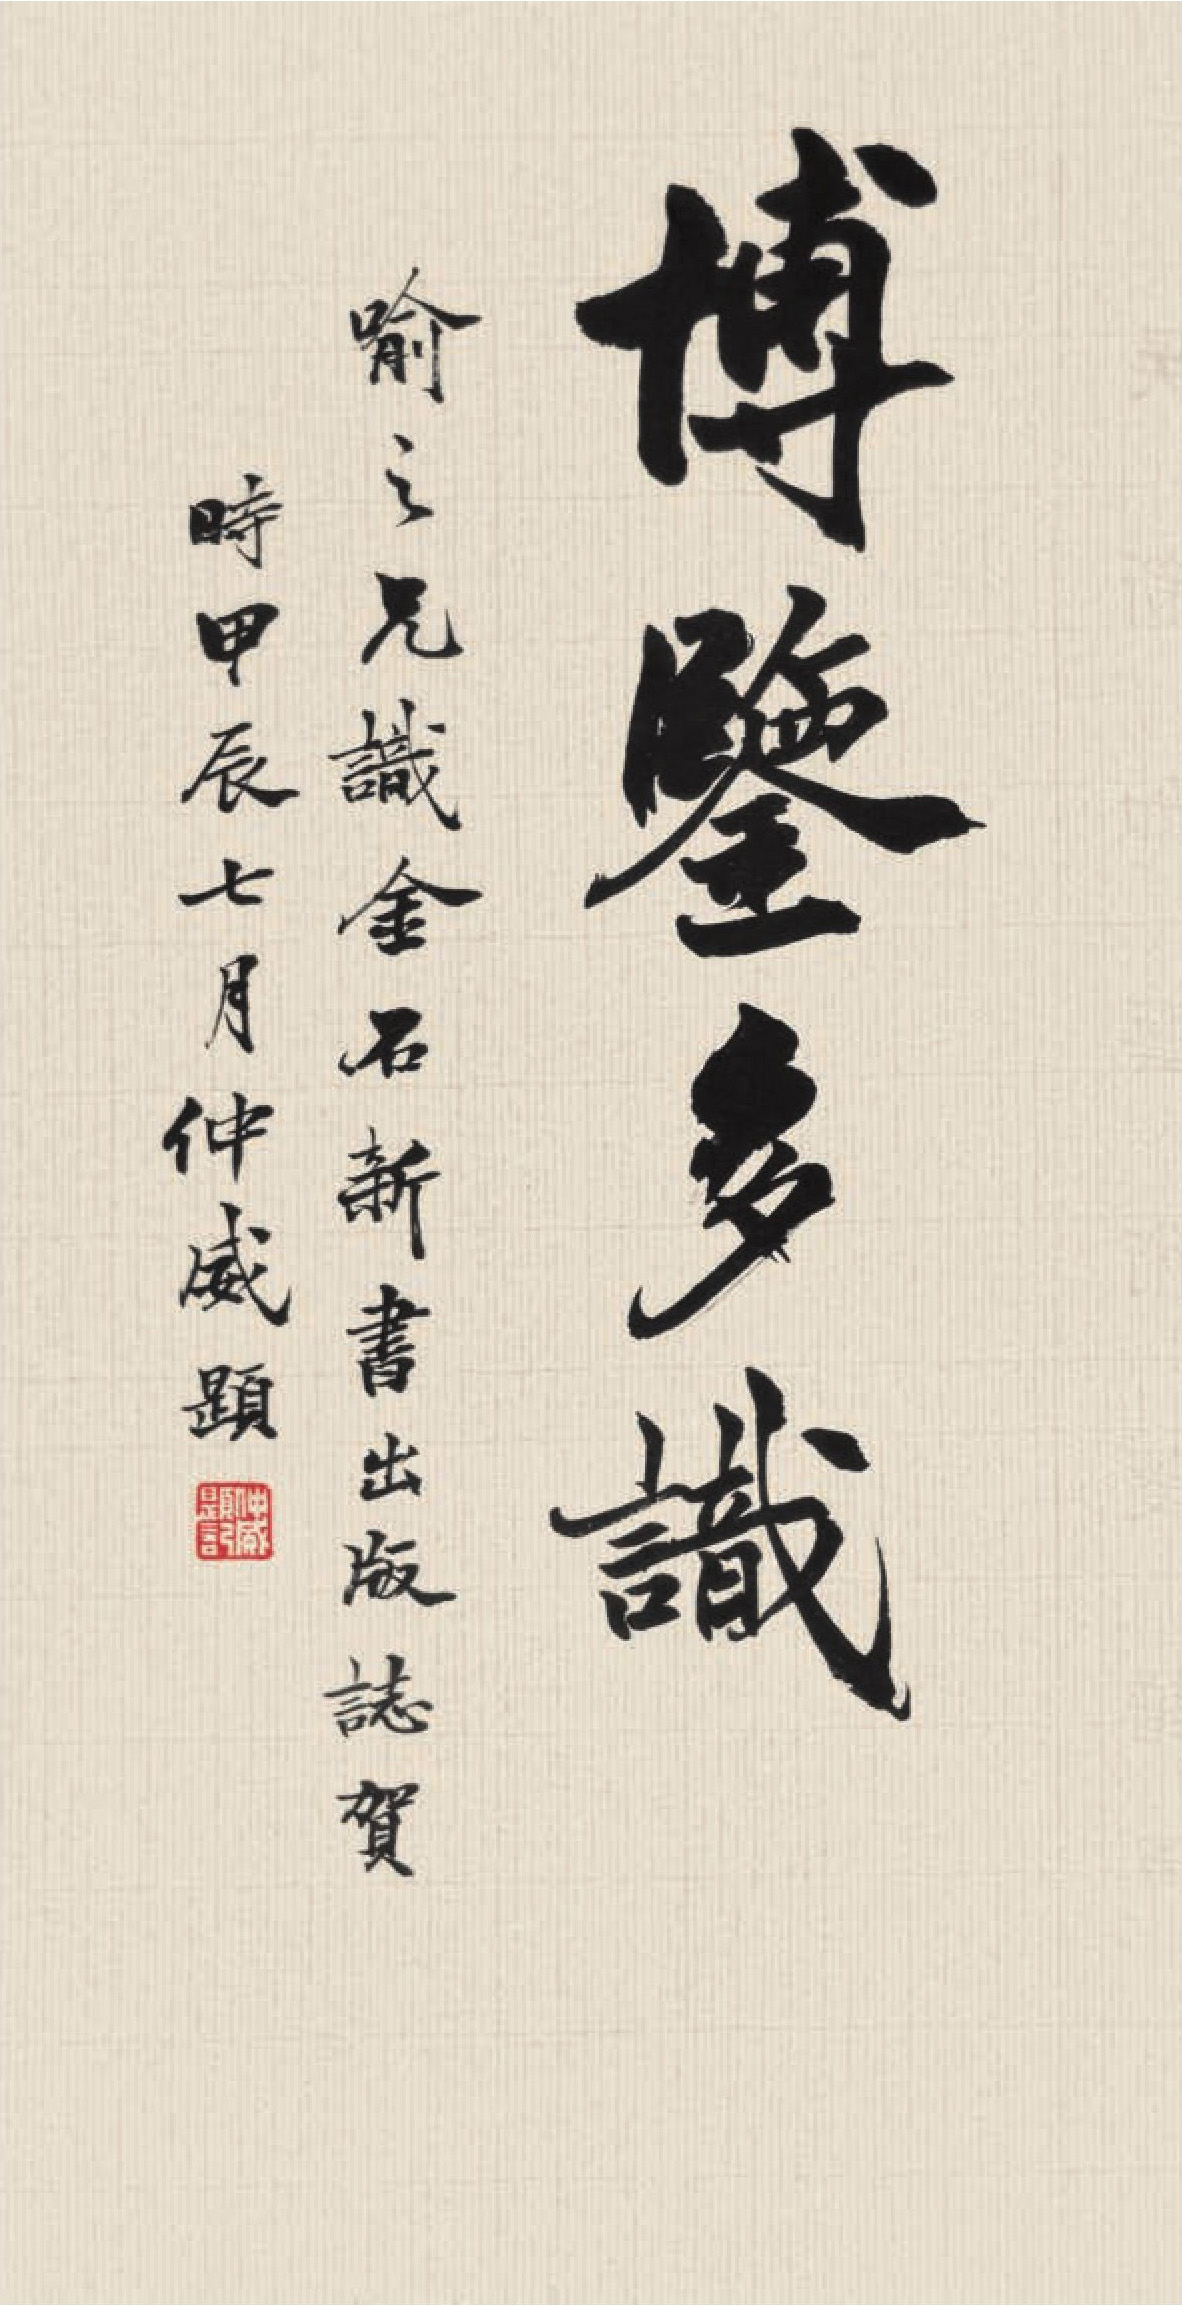 博鑒多識
喻之兄識金石新書出版誌賀
時甲辰七月仲威題
仲威
題記